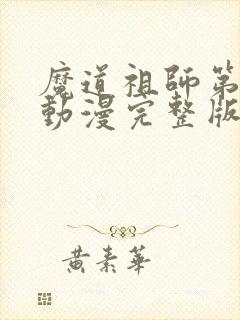 魔道祖師第
動漫完整版
黃素華